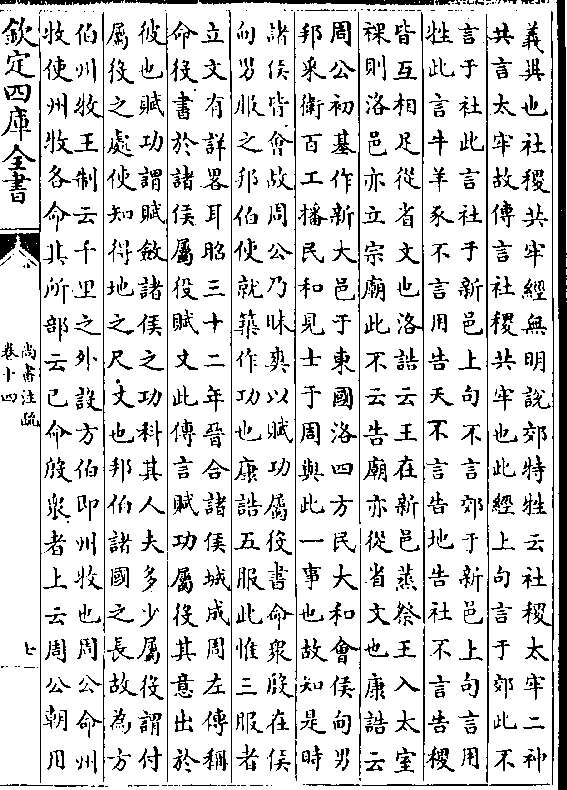 義異也社稷共牢經無明說郊特牲云社稷太牢二神
共言太牢故傳言社稷共牢也此經上句言于郊此不
言于社此言社于新邑上句不言郊于新邑上句言用
牲此言牛羊豕不言用告天不言告地告社不言告稷
皆互相足從省文也洛誥云王在新邑烝祭王入太室
祼則洛邑亦立宗廟此不云告廟亦從省文也康誥云
周公初基作新大邑于東國洛四方民大和會侯甸男
邦采衛百工播民和見士于周與此一事也故知是時
諸侯皆會故周公乃昧爽以賦功屬役書命衆殷在侯
甸男服之邦伯使就築作功也康誥五服此惟三服者
立文有詳畧耳昭三十二年晉合諸侯城成周左傳稱
命役書於諸侯屬役賦丈此傳言賦功屬役其意出於
彼也賦功謂賦斂諸侯之功科其人夫多少屬役謂付
屬役之處使知得地之尺丈也邦伯諸國之長故為方
伯州牧王制云千里之外設方伯即州牧也周公命州
牧使州牧各命其所部云已命殷衆者上云周公朝用
欽定四庫全書
尚書注疏
卷十四
七